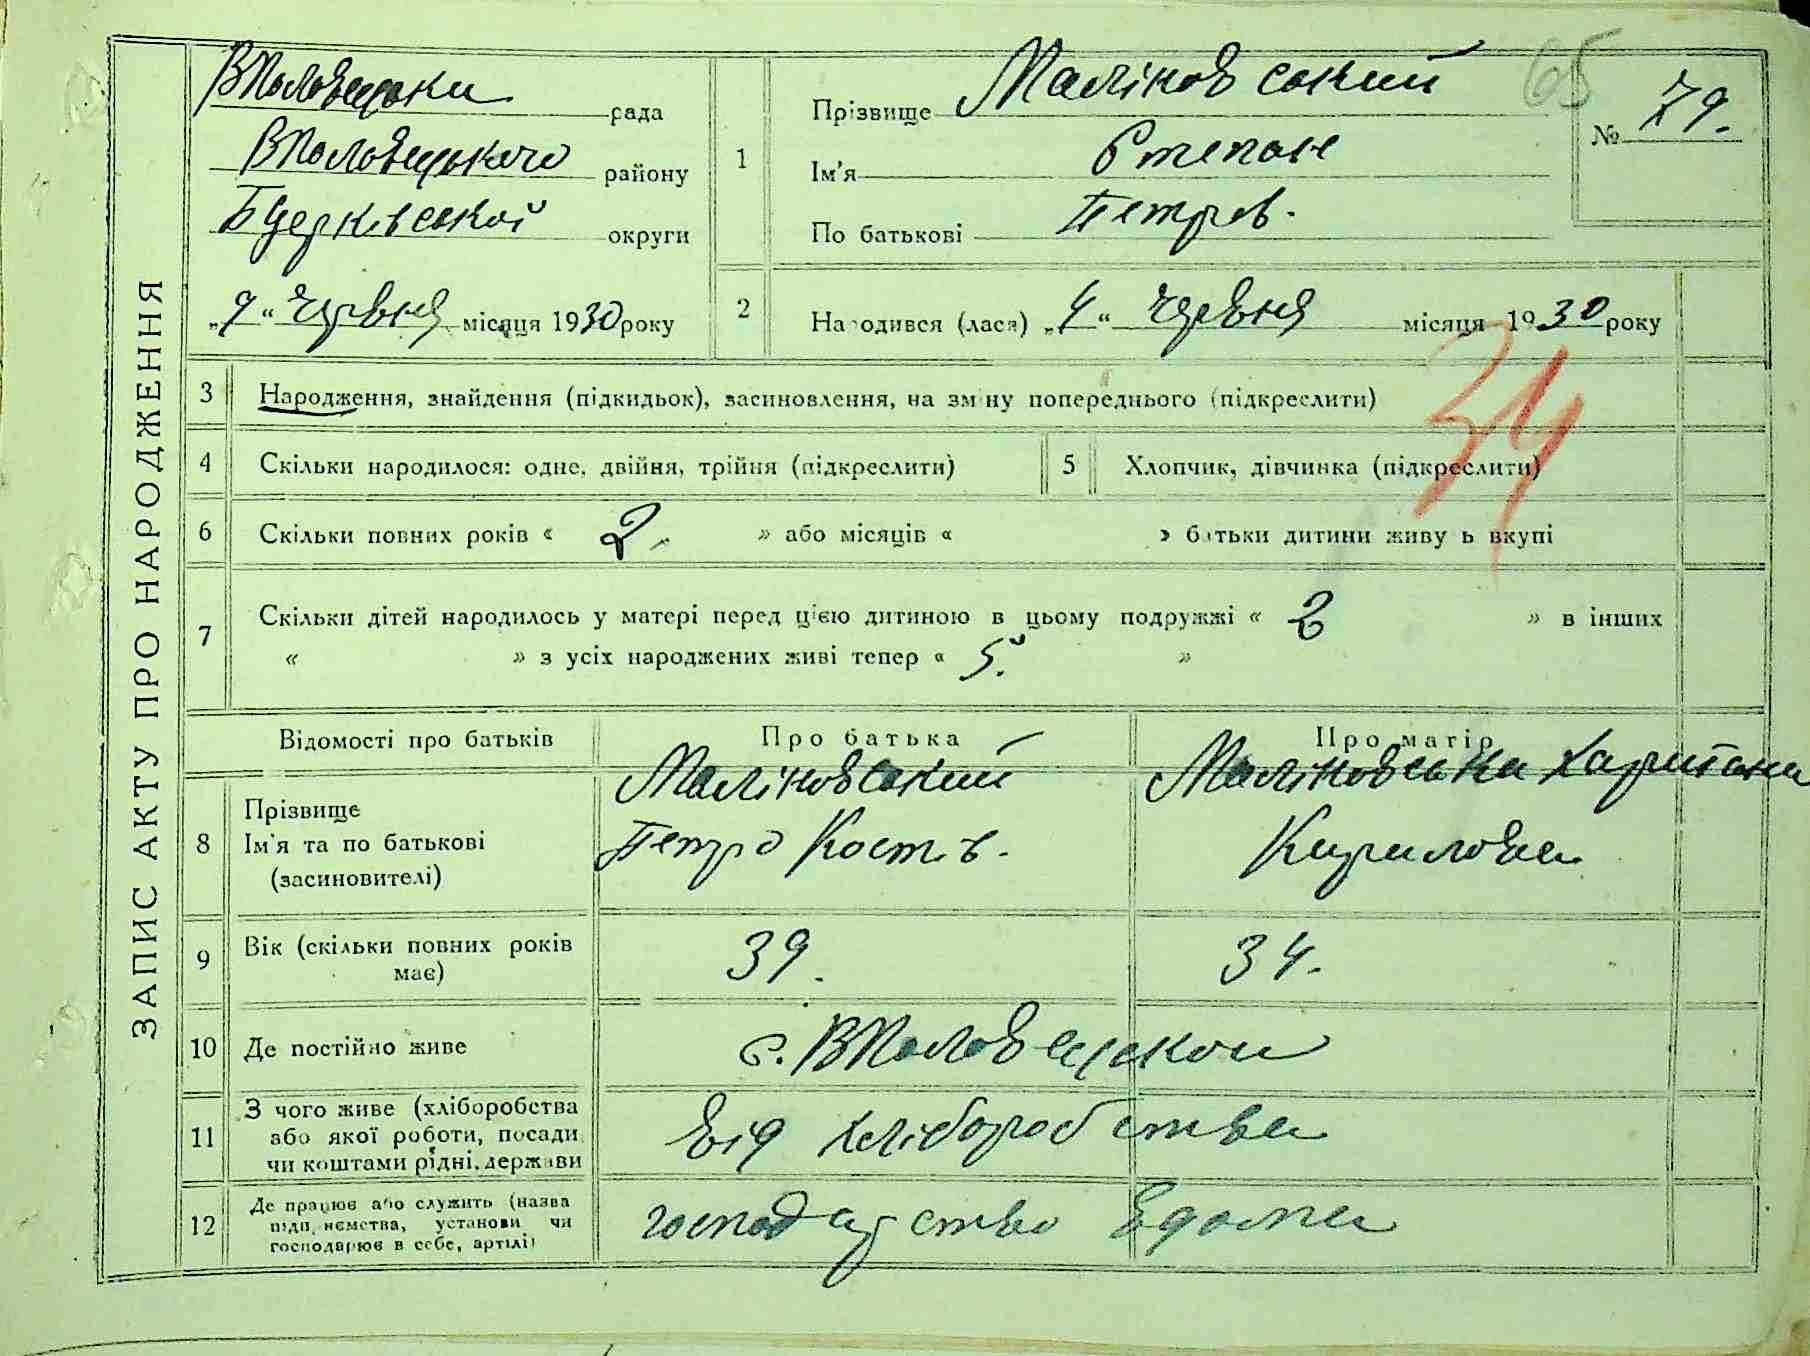 ЗАПИС АКТУ ПРО НАРОДЖЕННЯ
ВПоловецька рада
ВПоловецького району
БЦерківської округи
„9“ червня місяця 1930 року
1
Прізвище Маліновський
Ім'я Степан
По батькові Петров.
65
№ 79.
2 Народився (лася) „4“ червня місяця 1930 року
3 Народження, знайдення (підкидьок), засиновлення, на зміну попереднього (підкреслити)
34
4 Скільки народилося: одне, двійня, трійня (підкреслити) 5 Хлопчик, дівчинка (підкреслити)
6 Скільки повних років « 2. » або місяців « » батьки дитини живуть вкупі
7 Скільки дітей народилось у матері перед цією дитиною в цьому подружжі « 2 » в інших
« » з усіх народжених живі тепер « 5. »
Відомості про батьків Про батька Про матір
8 Прізвище
Ім'я та по батькові
(засиновителі)
Маліновський
Петро Костів.
Маліновська Харитина
Кирилова
9 Вік (скільки повних років
має)
39. 34.
10 Де постійно живе с. ВПоловецькои
11 З чого живе (хліборобства
або якої роботи, посади
чи коштами рідні, держави
від хліборобства
12 Де працює або служить (назва
підприємства, установи чи
господарює в себе, артілі)
господарство вдома